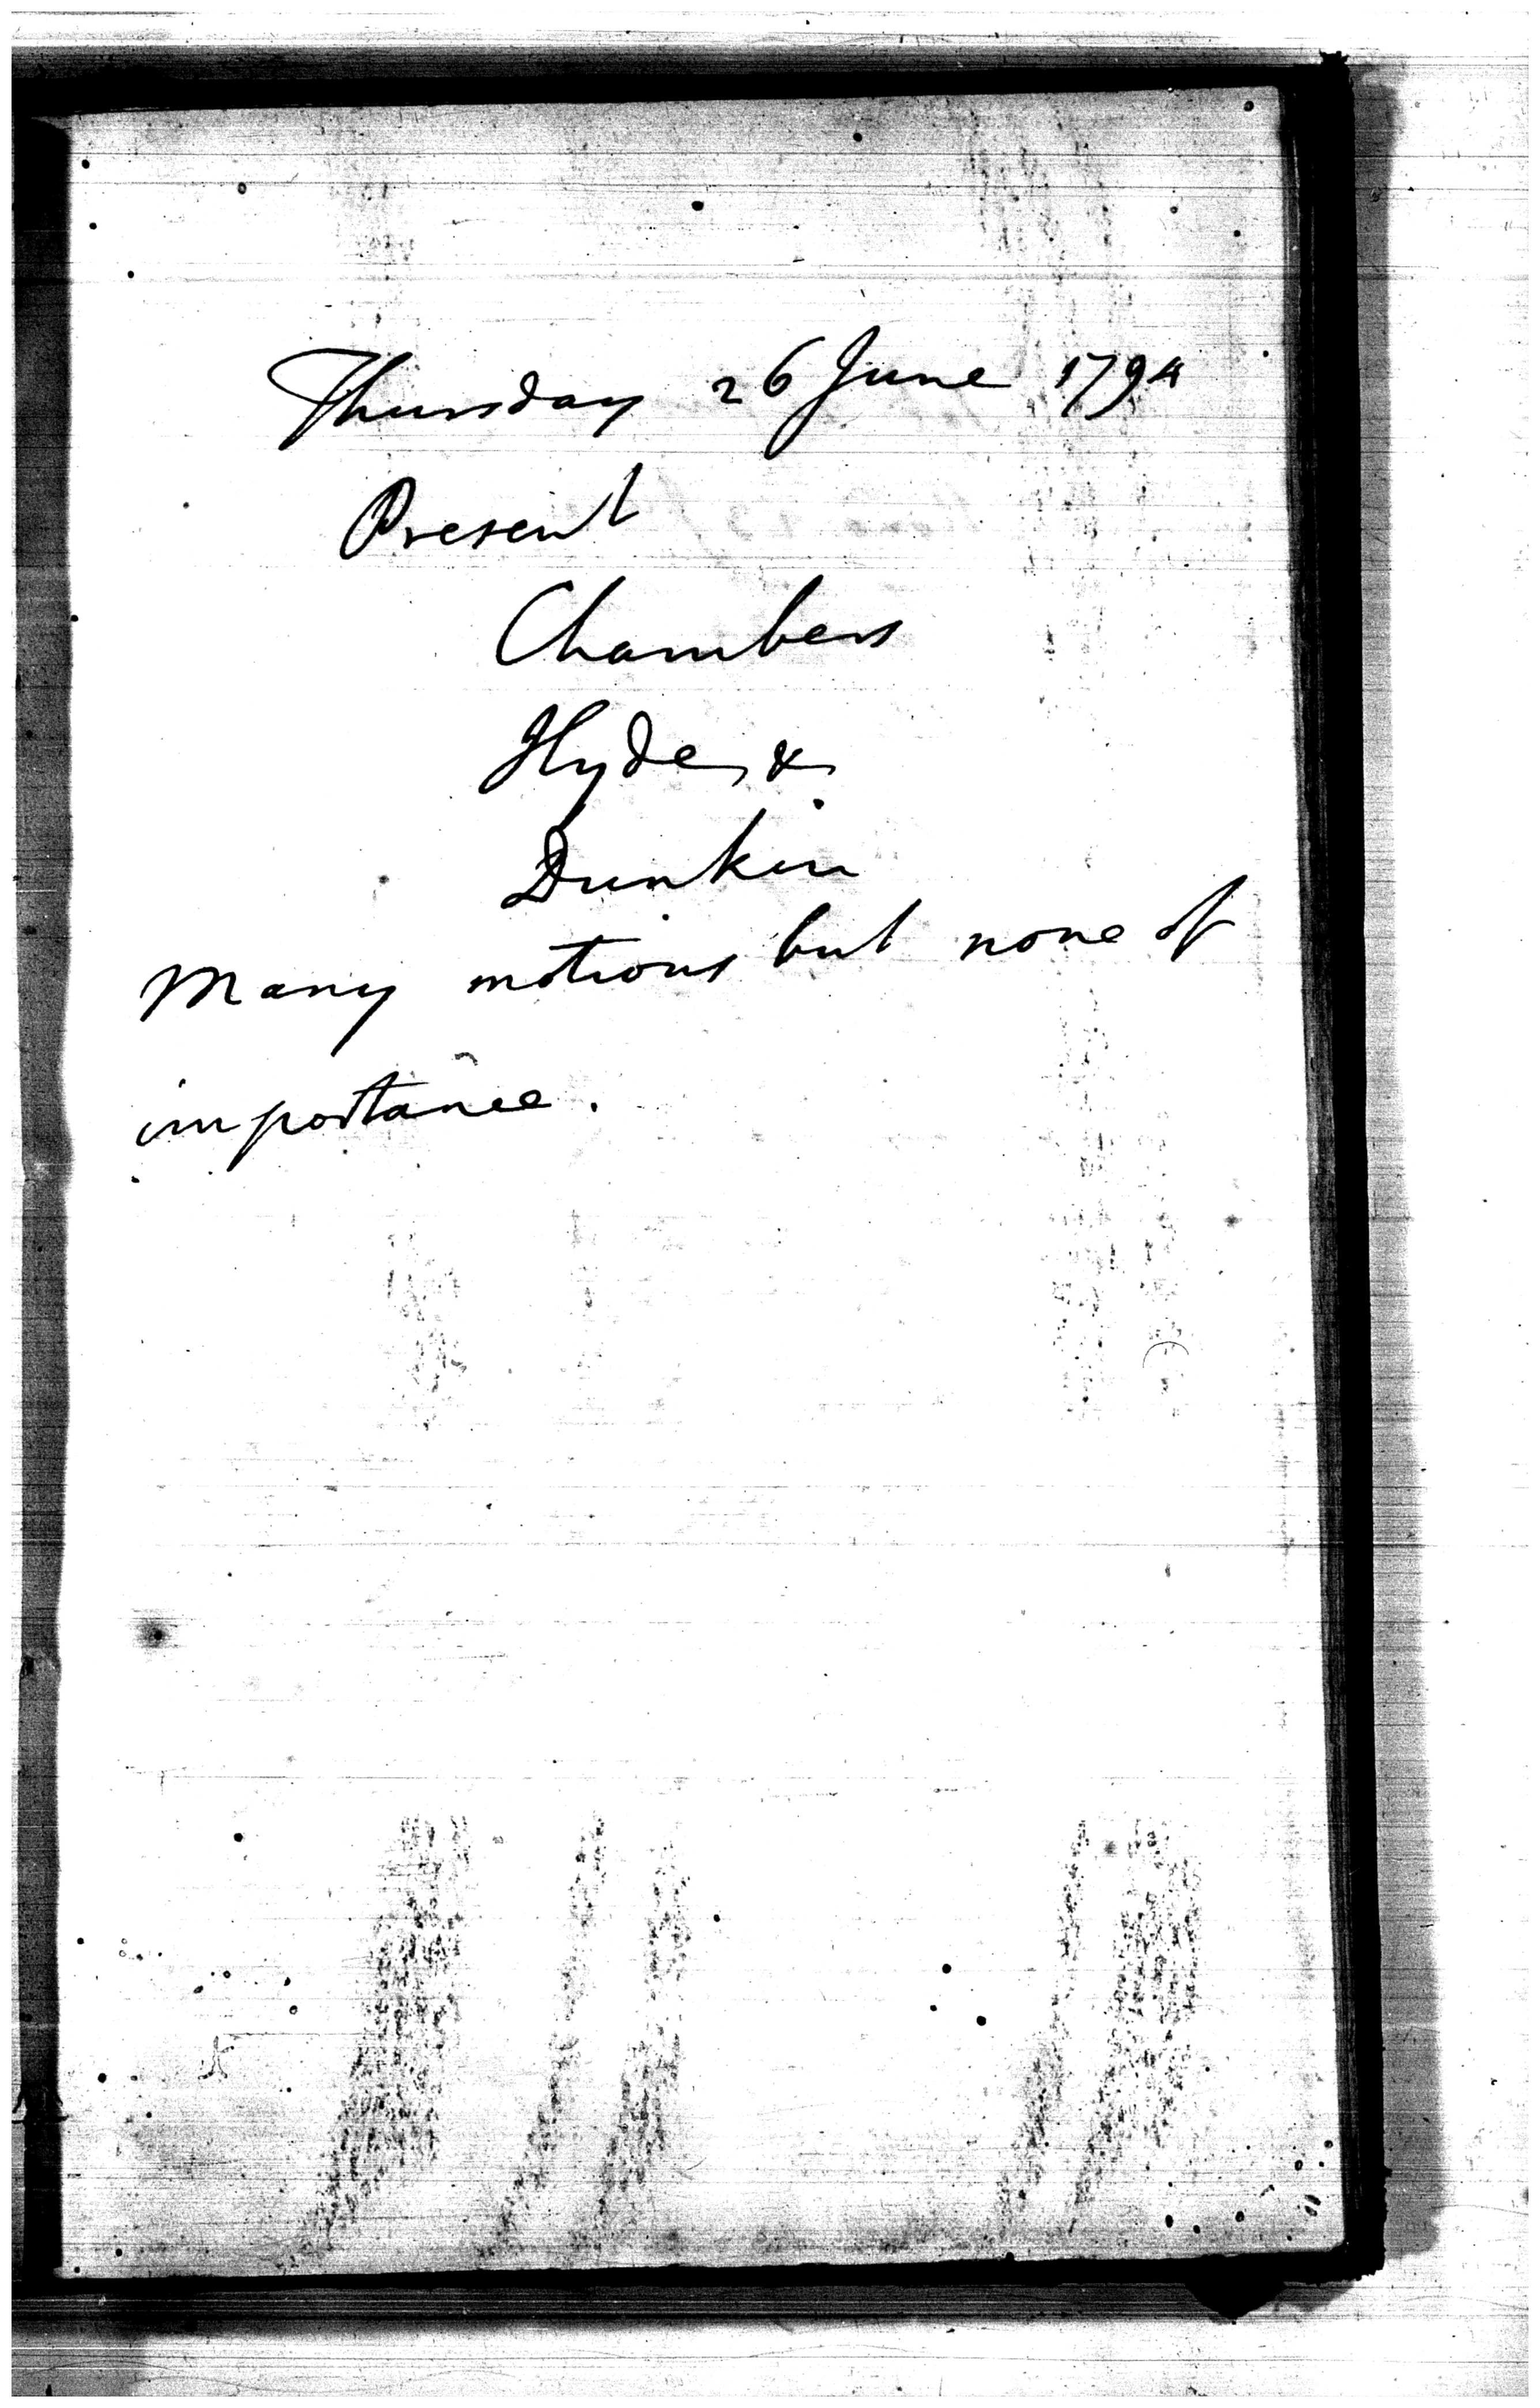 Thursday 26 June 1794
Present
Chambers
Hyde, &
Dunkin
Many motions but none of
importance.